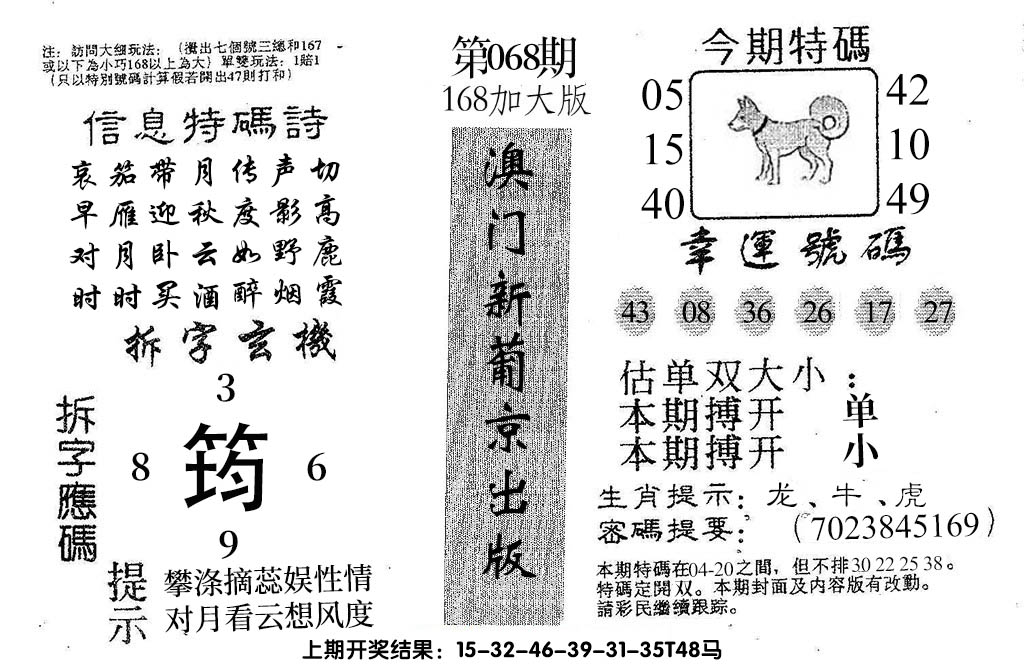 注：訪問大細玩法：（攪出七個號三總和167
或以下為小巧168以上為大）單雙玩法：1賠1
（只以特別號碼計算假若開出47則打和）
信息特碼詩
哀笳带月传声切
早雁迎秋度影高
对月卧云如野鹿
时时买酒醉烟霞
拆字玄機
拆字應碼
3
8 筠 6
9
提示
攀涤摘蕊娱性情
对月看云想风度
第068期
168加大版
澳门新葡京出版
今期特碼
05 42
15 10
40 49
幸運號碼
43 08 36 26 17 27
估单双大小：
本期搏开 单
本期搏开 小
生肖提示：龙、牛、虎
密碼提要：（7023845169）
本期特碼在04-20之間，但不排30 22 25 38。
特碼定開双。本期封面及内容版有改動。
請彩民繼續跟踪。
上期开奖结果：15-32-46-39-31-35T48马